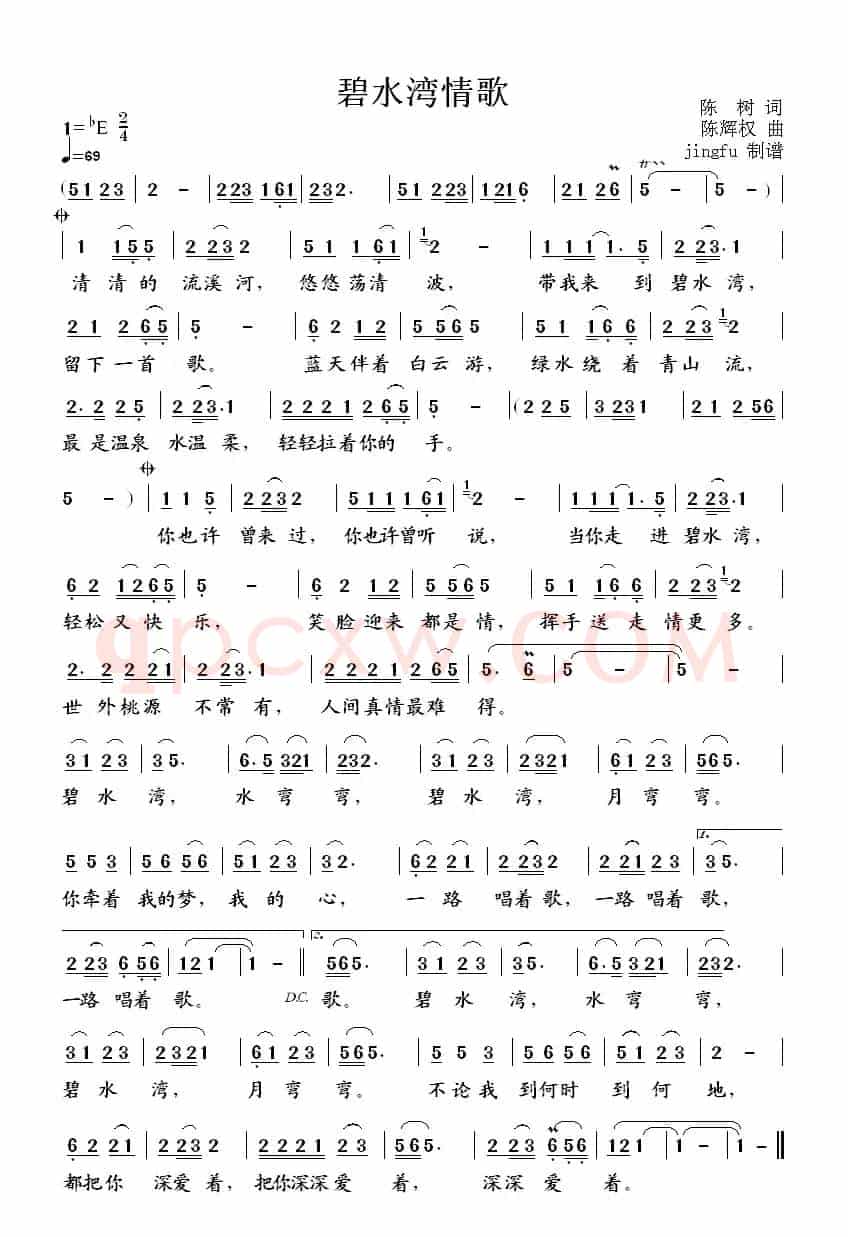 碧水湾情歌
陈 树 词
1=♭E 2/4
陈辉权 曲
♩=69
jingfu 制谱
(5 1 2 3 | 2 - | 2 2 3 1 6 1 | 2 3 2. | 5 1 2 2 3 | 1 2 1 6 | 2 1 2 6 | 5 - | 5 - ) |
| 1 1 5 5 | 2 2 3 2 | 5 1 1 6 1 | 1 2 - | 1 1 1 1. 5 | 2 2 3. 1 |
清 清 的 流 溪 河, 悠悠荡清 波, 带我来 到 碧水 湾,
2 1 2 6 5 | 5 - | 6 2 1 2 | 5 5 6 5 | 5 1 1 6 6 | 2 2 3 1 2 |
留下一首 歌。 蓝天伴着 白云 游, 绿水绕着 青山 流,
2. 2 2 2 5 | 2 2 3. 1 | 2 2 2 1 2 6 5 | 5 - | (2 2 5 | 3 2 3 1 | 2 1 2 5 6 |
最 是温泉 水温 柔, 轻轻拉着你的 手。
5 - ) | 1 1 5 | 2 2 3 2 | 5 1 1 1 6 1 | 1 2 - | 1 1 1 1. 5 | 2 2 3. 1 |
你也许 曾来 过, 你也许曾听 说, 当你走 进 碧水 湾,
6 2 1 2 6 5 | 5 - | 6 2 1 2 | 5 5 6 5 | 5 1 1 6 6 | 2 2 3 1 2 |
轻松又快 乐, 笑脸迎来 都是 情, 挥手送走 情更 多。
qpcxw.COM
2. 2 2 2 1 | 2 2 3. 1 | 2 2 2 1 2 6 5 | 5. 6 | 5 - | 5 - |
世 外桃源 不常 有, 人间真情最难 得。
3 1 2 3 | 3 5. | 6. 5 3 2 1 | 2 3 2. | 3 1 2 3 | 2 3 2 1 | 6 1 2 3 | 5 6 5. |
碧 水 湾, 水 弯 弯, 碧 水 湾, 月 弯 弯。
1.
5 5 3 | 5 6 5 6 | 5 1 2 3 | 3 2. | 6 2 2 1 | 2 2 3 2 | 2 2 1 2 3 | 3 5. |
你牵着 我的梦, 我 的 心, 一 路 唱着 歌, 一路 唱着 歌,
2.
2 2 3 6 5 6 | 1 2 1 | 1 - ‖ 5 6 5. | 3 1 2 3 | 3 5. | 6. 5 3 2 1 | 2 3 2. |
一路 唱着 歌。 D.C. 歌。 碧 水 湾, 水 弯 弯,
3 1 2 3 | 2 3 2 1 | 6 1 2 3 | 5 6 5. | 5 5 3 | 5 6 5 6 | 5 1 2 3 | 2 - |
碧 水 湾, 月 弯 弯。 不论我 到何时 到 何 地,
6 2 2 1 | 2 2 3 2 | 2 2 2 1 2 3 | 5 6 5. | 2 2 3 6 5 6 | 1 2 1 | 1 - ‖
都把你 深爱 着, 把你深深爱 着, 深深 爱 着。